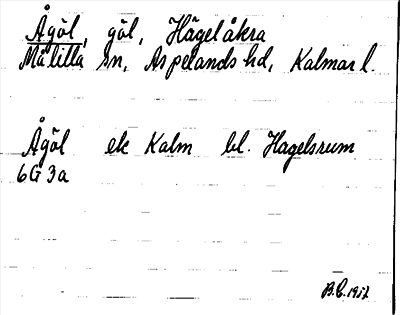 Ågöl, göl, Hägelåkra
Målilla sn, Aspelands hd, Kalmar l.
Ågöl ek Kalm bl. Hagelsrum
6G3a